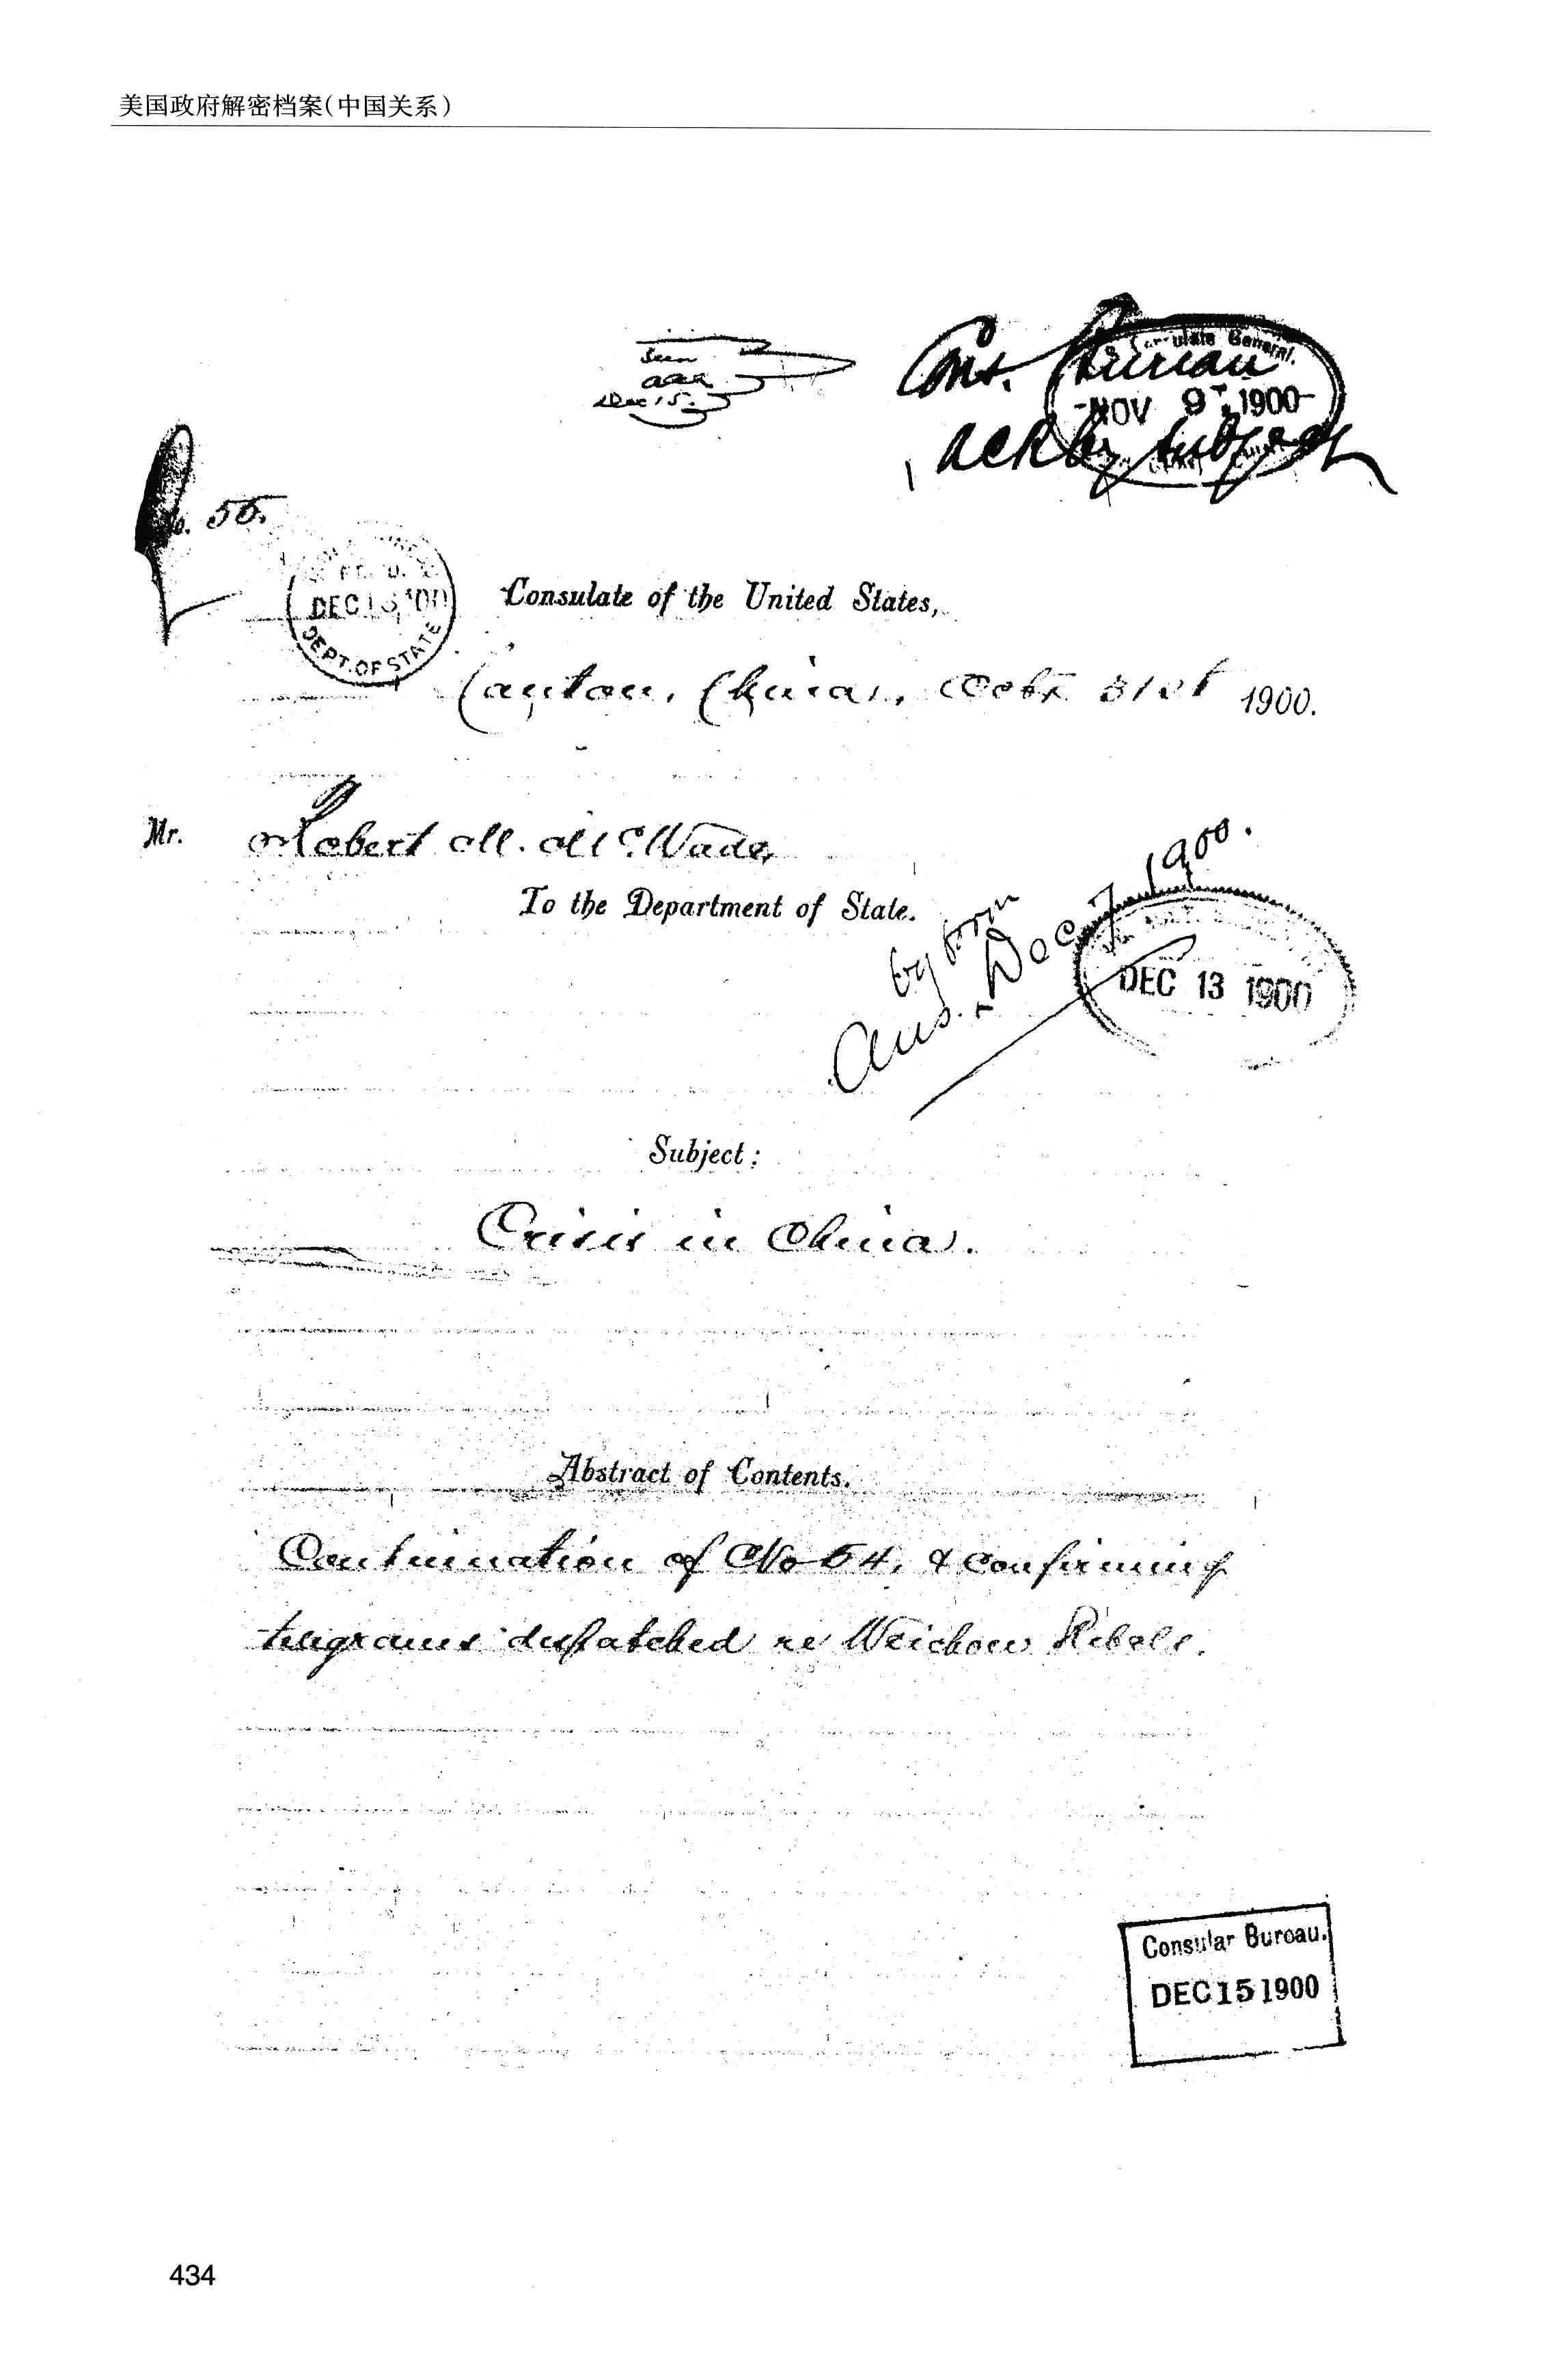 美国政府解密档案(中国关系)
Seen
aaa
Dec 15.
Cons. Bureau
Consulate General.
NOV 9 1900
ack by subject
No. 55.
DEC 13, '00
DEPT. OF STATE
Consulate of the United States,
Canton, China, Octr. 31st 1900.
Mr. Robert M. McWade,
To the Department of State.
by form
Ans. Dec 17 1900.
DEC 13 1900
Subject:
Crisis in China.
Abstract of Contents.
Continuation of No 54, & confirming
telegrams dispatched re Weichow Rebels.
Consular Bureau.
DEC 15 1900
434